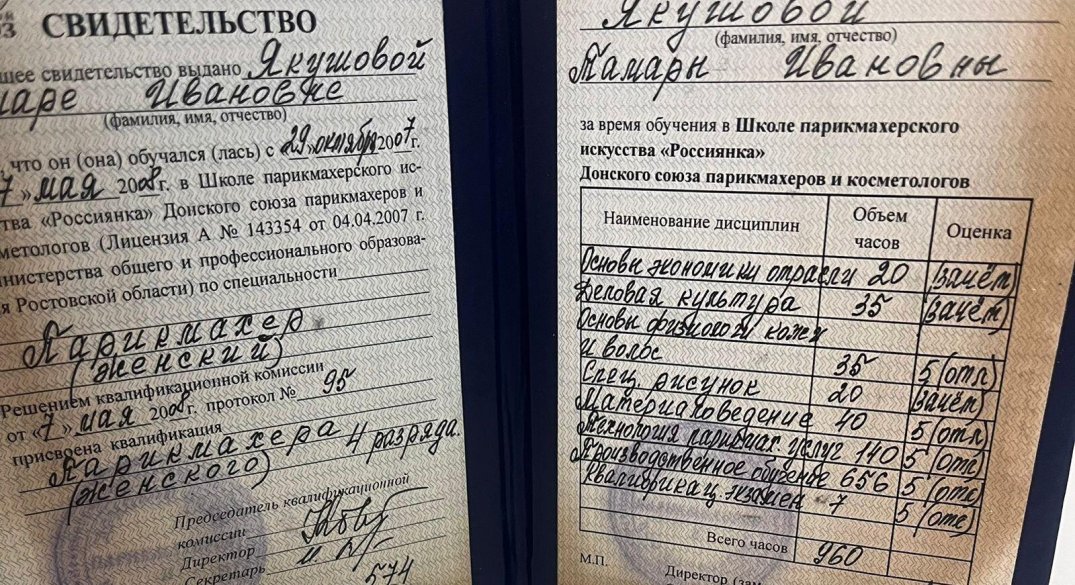 СВИДЕТЕЛЬСТВО
свидетельство выдано Якушовой
Ивановне
(фамилия, имя, отчество)
что он (она) обучался (лась) с «29» октября 2007 г.
7 » мая 2008 г. в Школе парикмахерского ис-
ства «Россиянка» Донского союза парикмахеров и
метологов (Лицензия А № 143354 от 04.04.2007 г.
инистерства общего и профессионального образова-
я Ростовской области) по специальности
Парикмахер
(женский)
Решением квалификационной комиссии
от «7» мая 2008 г. протокол № 95
присвоена квалификация
Парикмахера 4 разряда.
(женского)
Председатель квалификационной
комиссии
Директор
Секретарь
574
Якушовой
(фамилия, имя, отчество)
Тамары Ивановны
за время обучения в Школе парикмахерского
искусства «Россиянка»
Донского союза парикмахеров и косметологов
Наименование дисциплин Объем часов Оценка
Основы экономики отрасли 20 (зачёт)
Деловая культура 35 (зачёт)
Основы физиологии кожи
и волос 35 5 (отл)
Спец. рисунок 20 (зачёт)
Материаловедение 40 5 (отл)
Технология парикмах. услуг 140 5 (отл)
Производственное обучение 656 5 (отл)
Квалификац. экзамен 7 5 (отл)
Всего часов 960
М.П.
Директор (зам